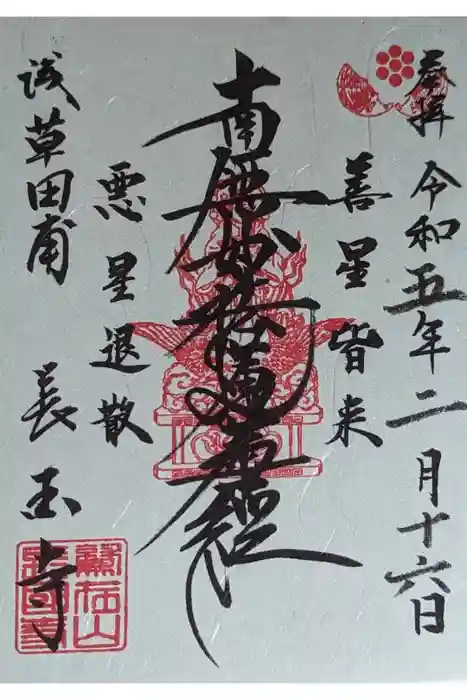 奉拝 令和五年二月十六日
善星皆来
南無妙法蓮華経
悪星退散
浅草田甫 長玉寺
鷲在山
長國寺